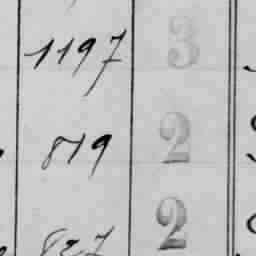 1197 3
819 2
827 2